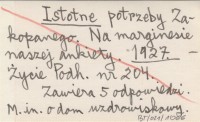 Istotne potrzeby Za-
kopanego. Na marginesie
naszej ankiety. 1927 -
Życie Podh. nr 204.
Zawiera 5 odpowiedzi.
M. in. o dom uzdrowiskowy.